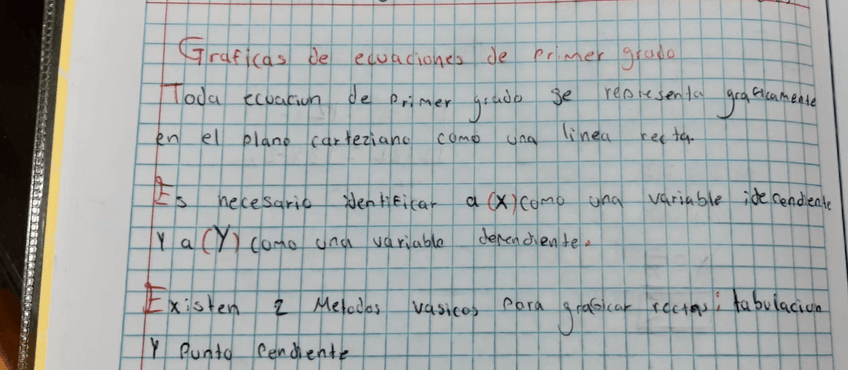 Graficas de ecuaciones de Primer grado
Toda ecuacion de Primer grado se representa graficamente
en el plano carteziano como una linea recta.
Es necesario identificar a (X) como una variable idependiente
Y a (Y) como una variable dependiente.
Existen 2 Metodos vasicos Para graficar rectas; tabulacion
Y Punto Pendiente